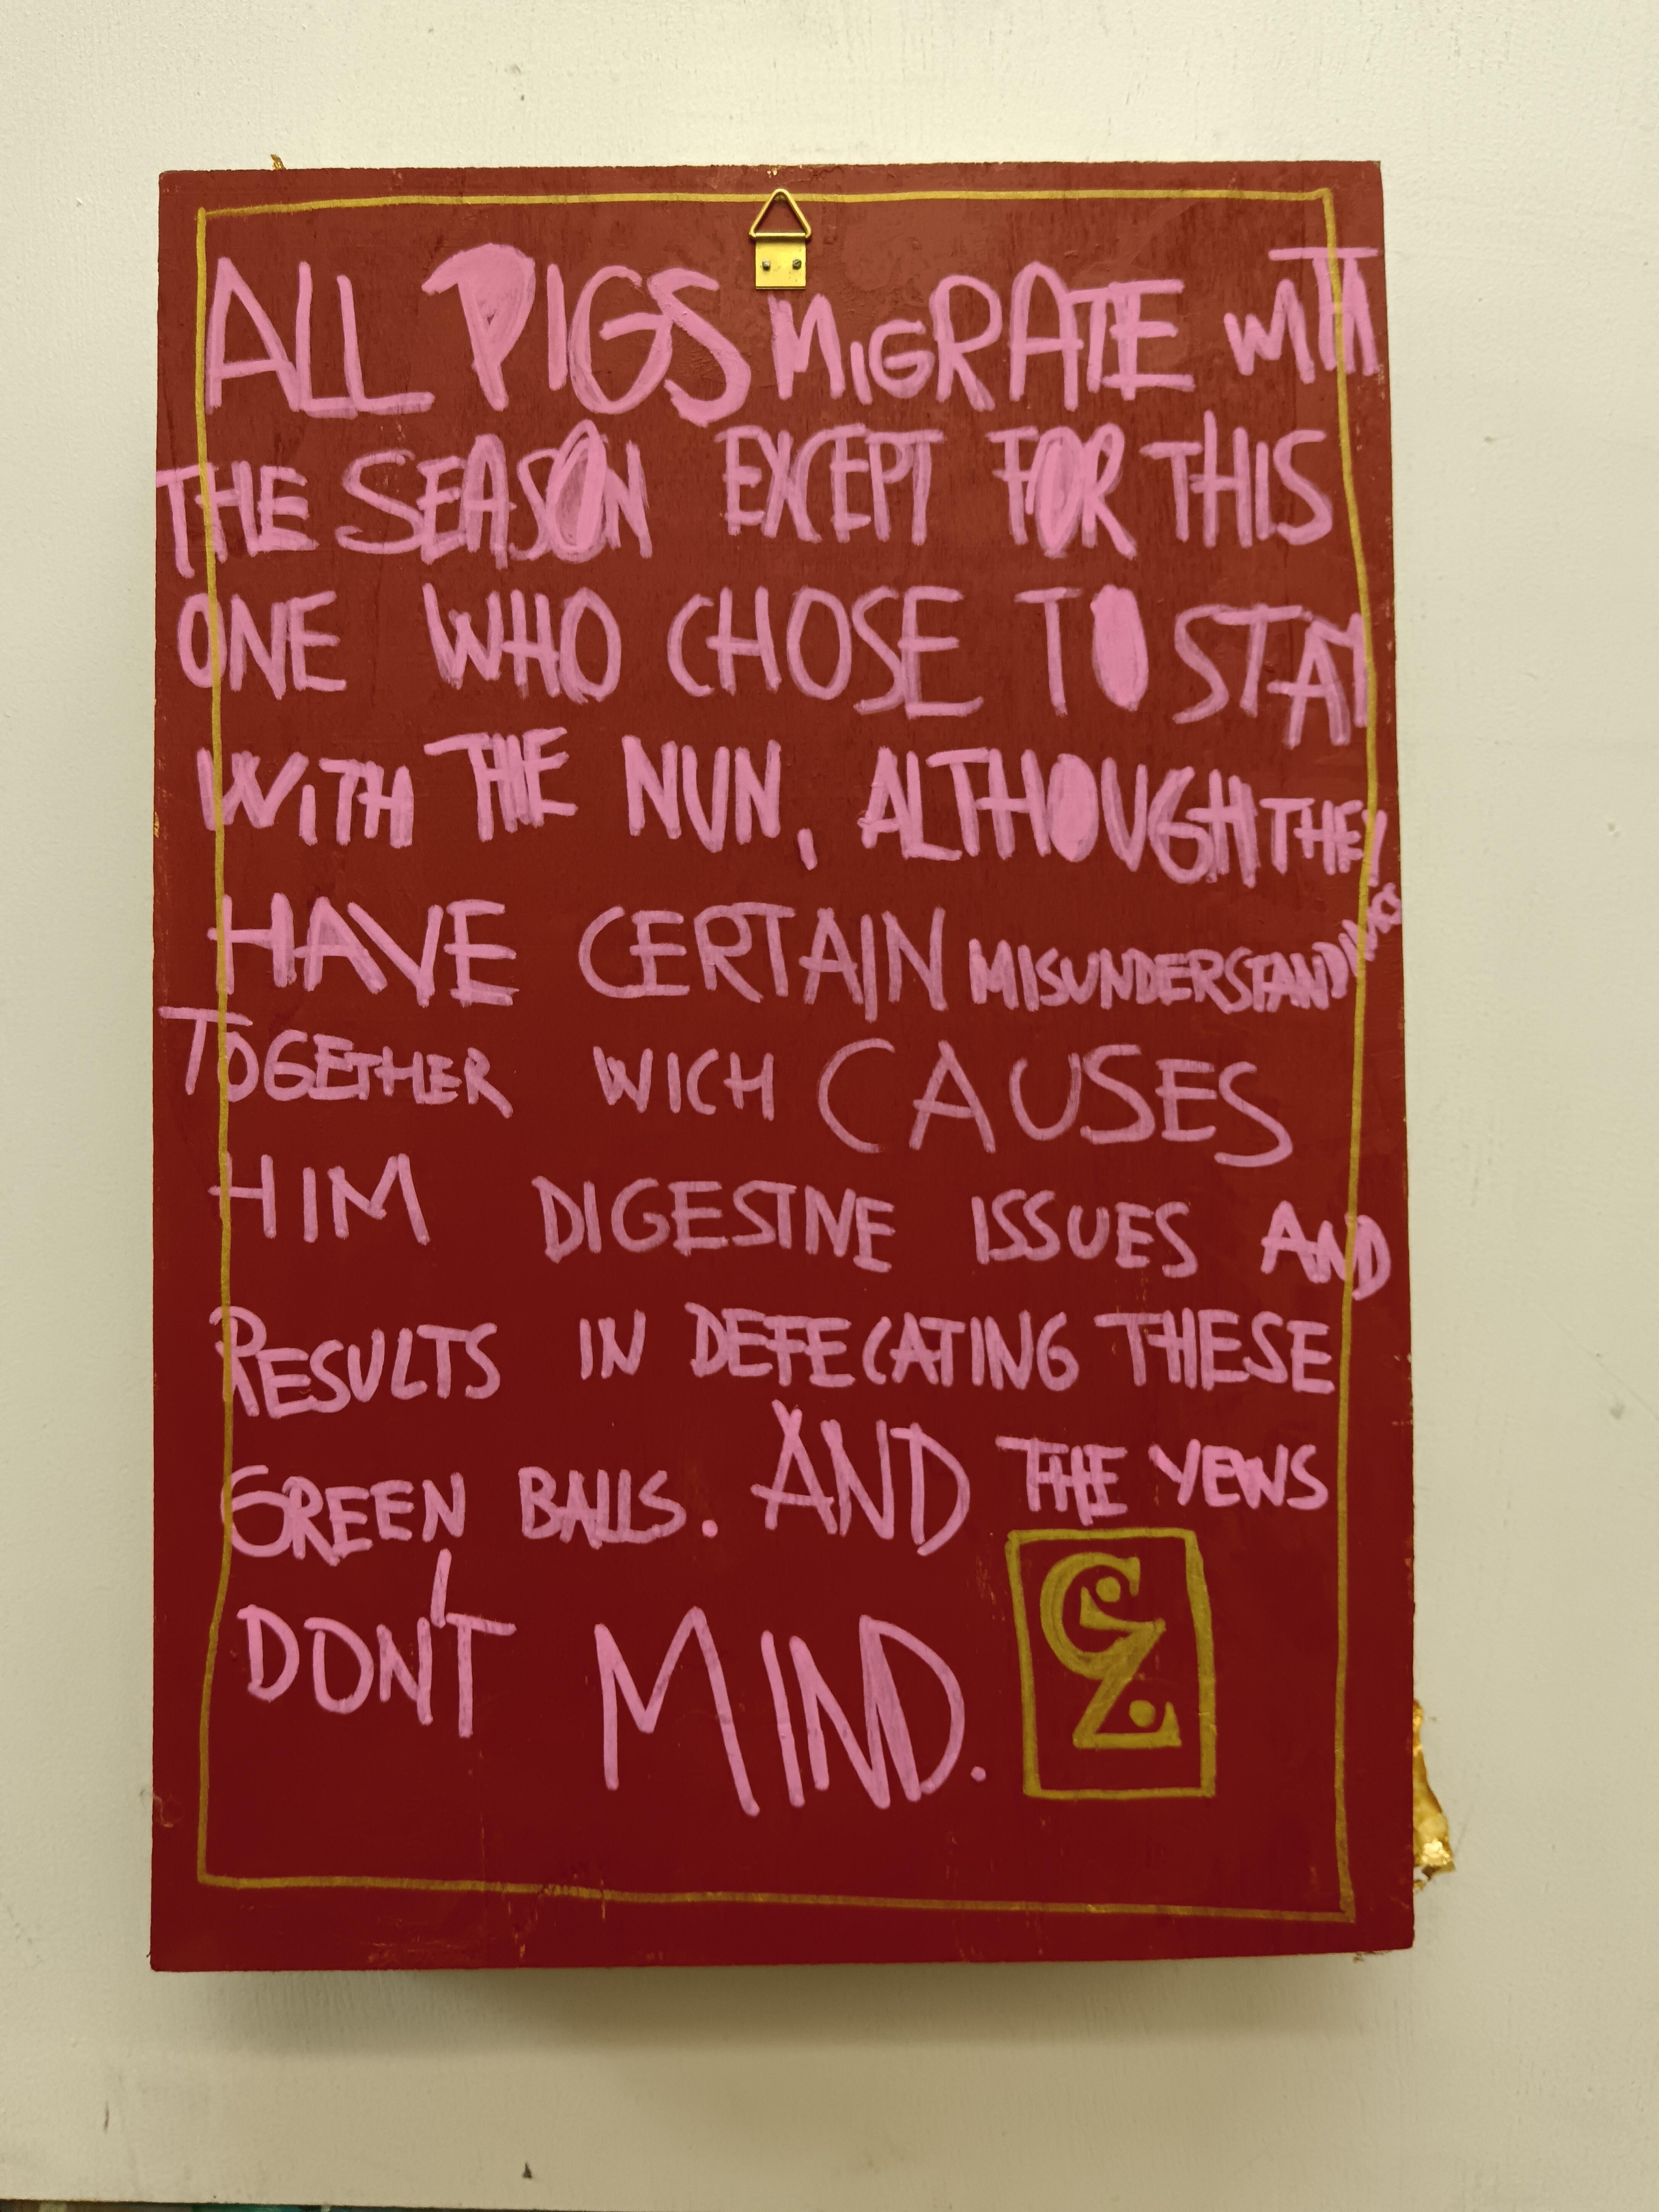 ALL PIGS MIGRATE WITH
THE SEASON EXCEPT FOR THIS
ONE WHO CHOSE TO STAY
WITH THE NUN, ALTHOUGH THEY
HAVE CERTAIN MISUNDERSTANDINGS
TOGETHER WICH CAUSES
HIM DIGESTIVE ISSUES AND
RESULTS IN DEFECATING THESE
GREEN BALLS. AND THE YEWS
DON'T MIND.
CZ